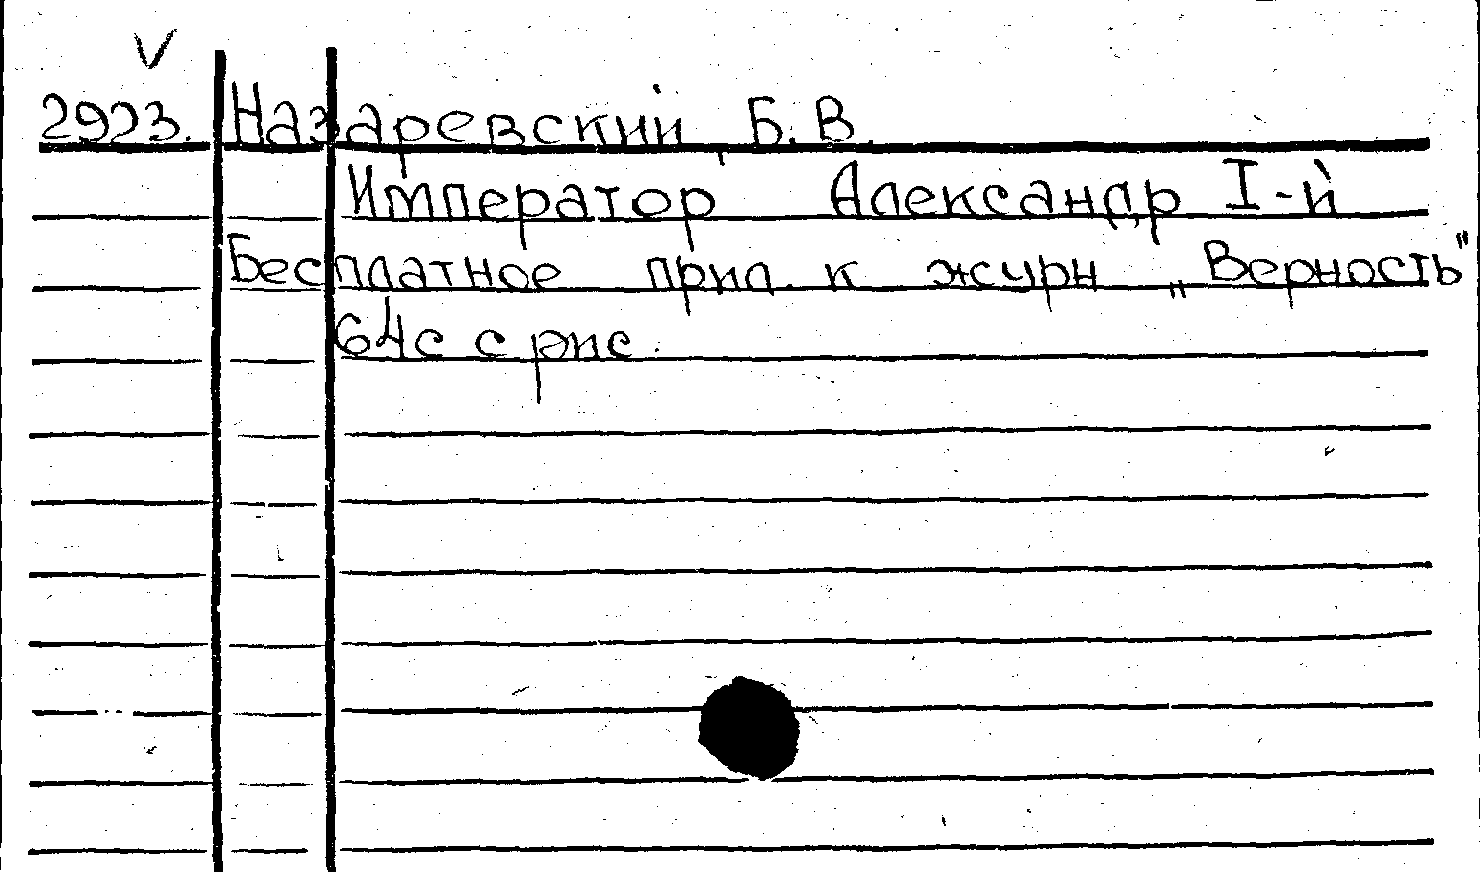 V
2923. Назаревский, Б. В.
Император Александр I-й
Бесплатное прил. к журн „Верность"
64с с рис.